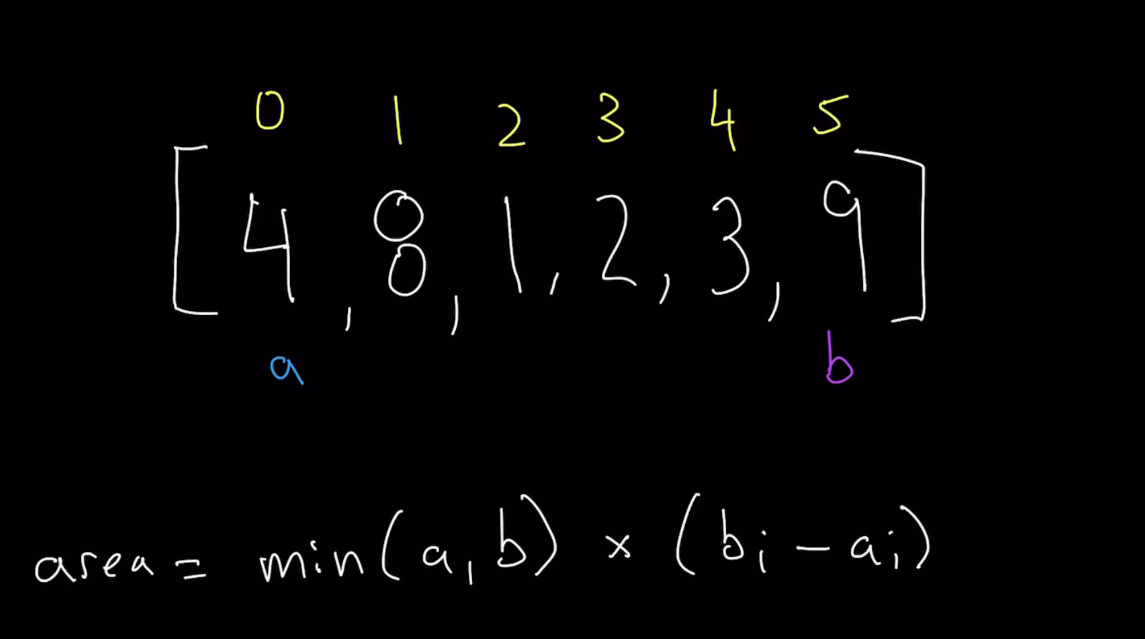 0 1 2 3 4 5
[4, 8, 1, 2, 3, 9]
a b
area = min(a, b) × (bi - ai)